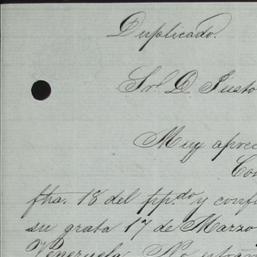 Duplicado.
Sr. D. Justo
Muy aprec
Con
fha. 18 del ppdo y conf
su grata 17 de Marzo
Venezuela. No